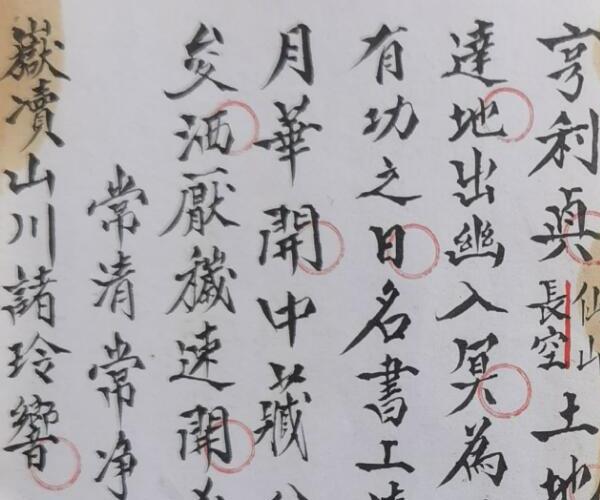 亨利貞仙山長空土地
達地出幽入冥為
有功之日名書上清
月華開中藏
洒厭穢速開
常清常净
嶽瀆山川諸玲響